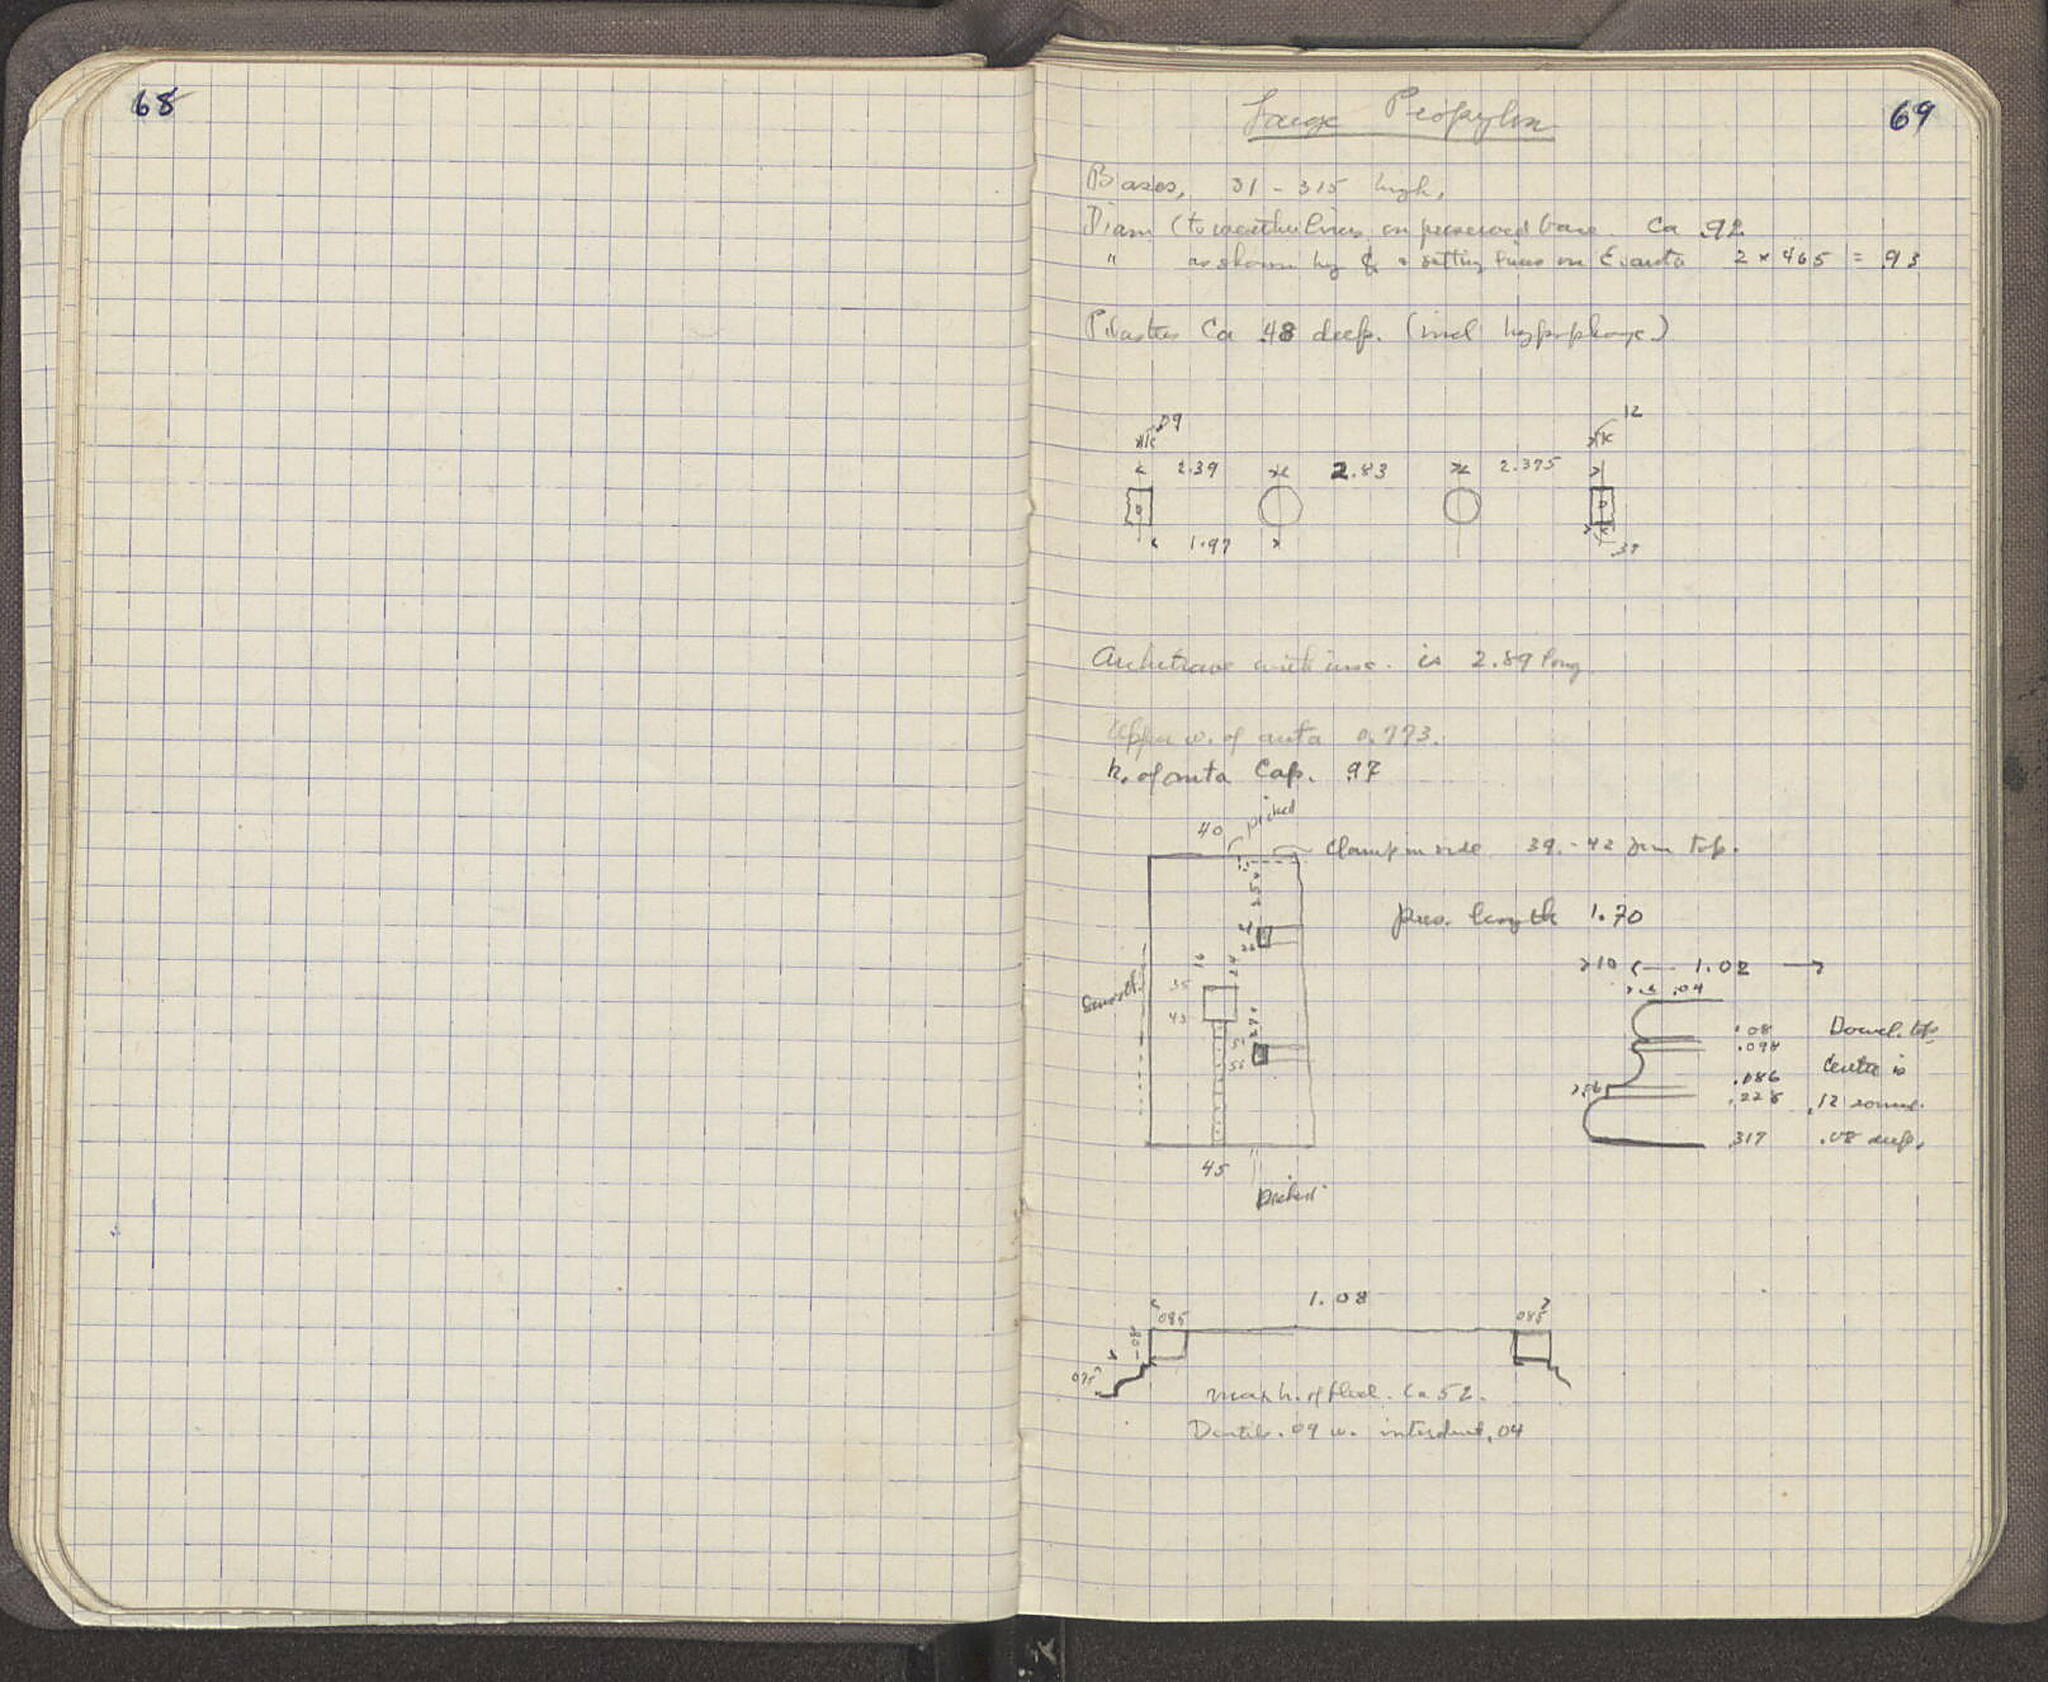 68
69
Large Propylon
Bases, 31 - 315 high,
Diam (to weather lines on preserved base. Ca .92
" as shown by & setting lines on E. anta 2 × 465 = .93
Pilaster Ca .48 deep. (incl hypophyge)
.09 12
2.39 2.83 2.375
1.97 .39
Architrave with insc. is 2.89 long
Upper w. of anta 0.773.
h. of anta Cap. .97
40 picked
Clamp in side 39.-42 from top.
pres. length 1.70
10 1.02
.04
35
43
Smooth
.08 Dowel. top
.098
.086 Center is
.228 .12 square
.317 .08 deep.
45
picked
1.08
085 085
.08
075
max h. of block. Ca 52.
Dentils .09 w. interdent. .04